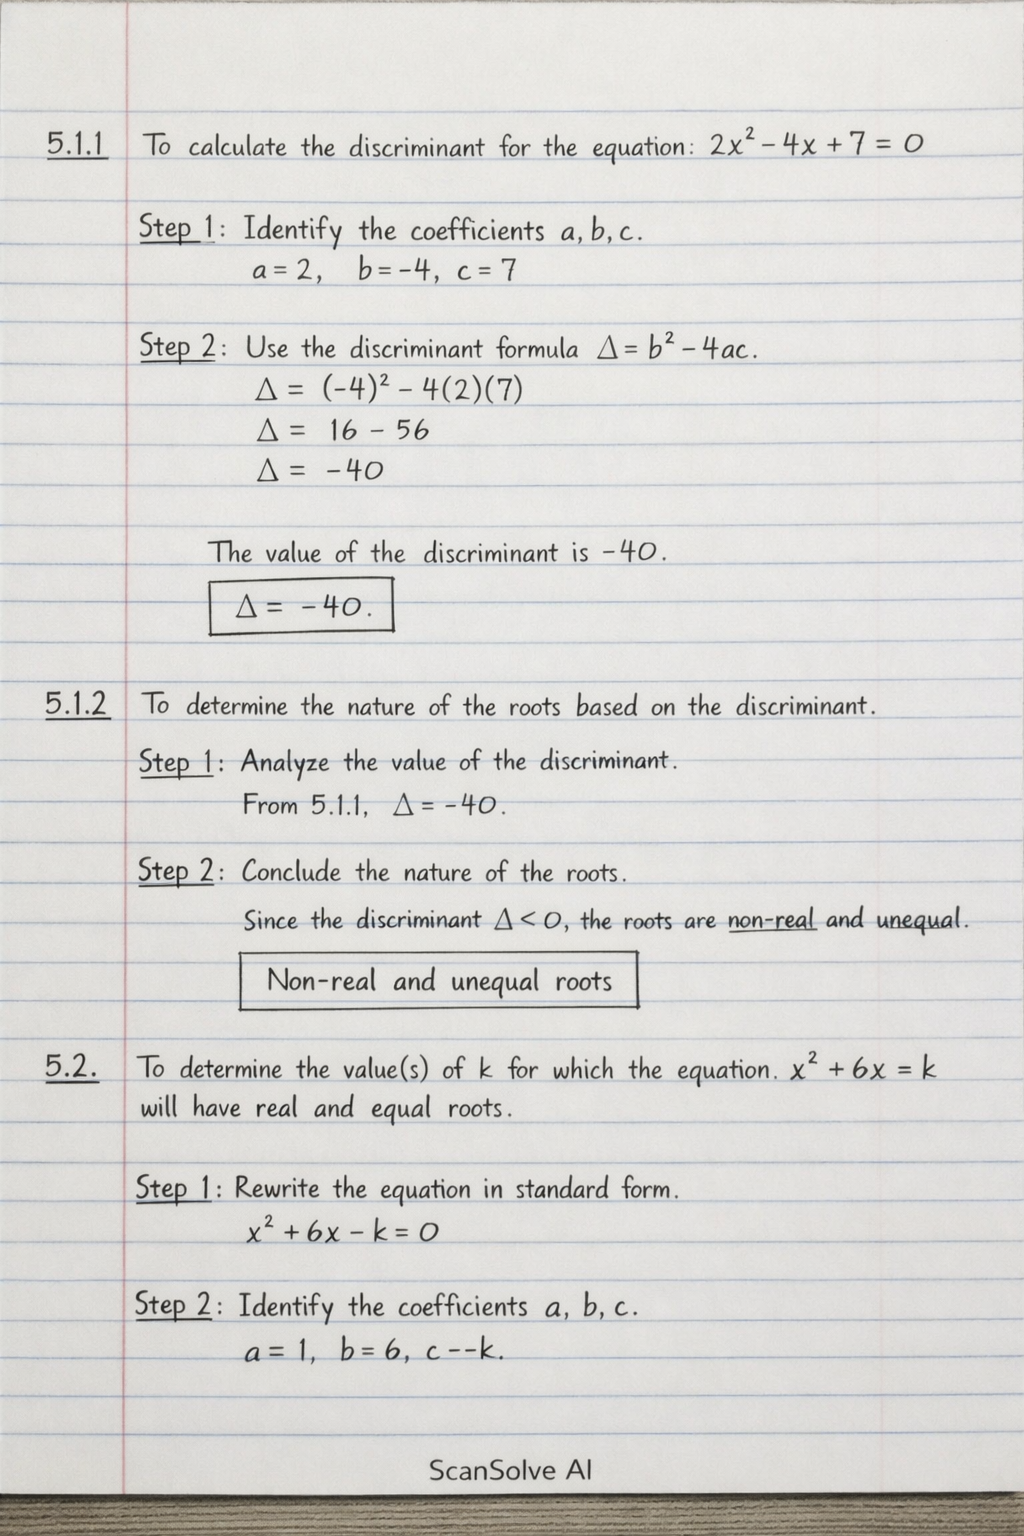 5.1.1 To calculate the discriminant for the equation: 2x² − 4x + 7 = 0
Step 1: Identify the coefficients a, b, c.
a = 2, b = −4, c = 7
Step 2: Use the discriminant formula Δ = b² − 4ac.
Δ = (−4)² − 4(2)(7)
Δ = 16 − 56
Δ = −40
The value of the discriminant is −40.
Δ = −40.
5.1.2 To determine the nature of the roots based on the discriminant.
Step 1: Analyze the value of the discriminant.
From 5.1.1, Δ = −40.
Step 2: Conclude the nature of the roots.
Since the discriminant Δ < 0, the roots are non-real and unequal.
Non-real and unequal roots
5.2. To determine the value(s) of k for which the equation. x² + 6x = k
will have real and equal roots.
Step 1: Rewrite the equation in standard form.
x² + 6x − k = 0
Step 2: Identify the coefficients a, b, c.
a = 1, b = 6, c --k.
ScanSolve AI